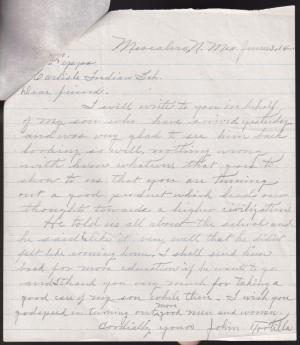 Mescalero, N. Mex June 3, 14
Carlisle Indian Sch.
Dear friend:
I will write to you in behalf
of my son who have arrived yesterday
and was very glad to see him back
looking so well, nothing wrong
with him whatever that goes to
show to us that you are turning
out a good product which leads our
thoughts towards a higher civilization
He told us all about the school and
he said like it very well that he didn't
felt like coming home. I shall send him
back for more education if he wants to go
and thank you very much for taking a
good care of my son while there. I wish you
more
godspeed in turning out good men and women
Cordially yours John Tortilla.